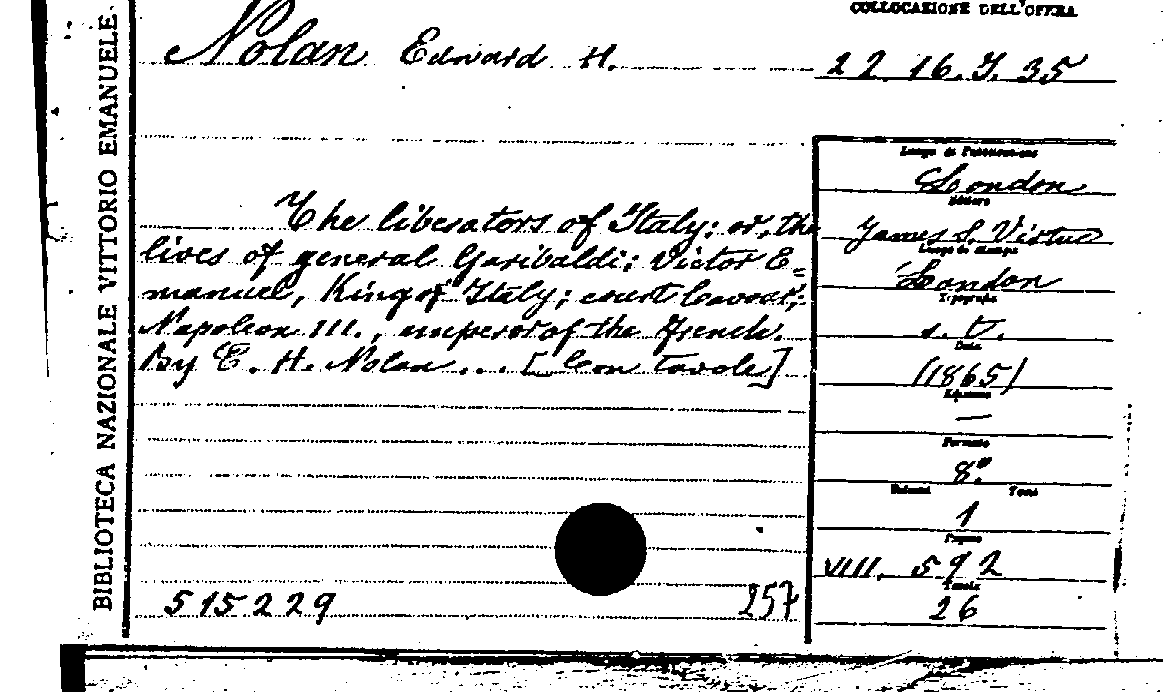 COLLOCAZIONE DELL'OPERA
Nolan Edward H.
22 16. J. 35
BIBLIOTECA NAZIONALE VITTORIO EMANUELE
Luogo di Pubblicazione
London
Editore
James S. Virtue
Luogo di stampa
London
Tipografo
s. T.
Data
(1865)
Edizione
—
Formato
8.°
Volumi Tomi
1
Pagine
VIII. 592
Tavole
26
The liberators of Italy; or, the
lives of general Garibaldi; Victor E=
manuel, King of Italy; count Cavour;
Napoleon III., emperor of the French.
By E. H. Nolan... [Con tavole]
515229
257